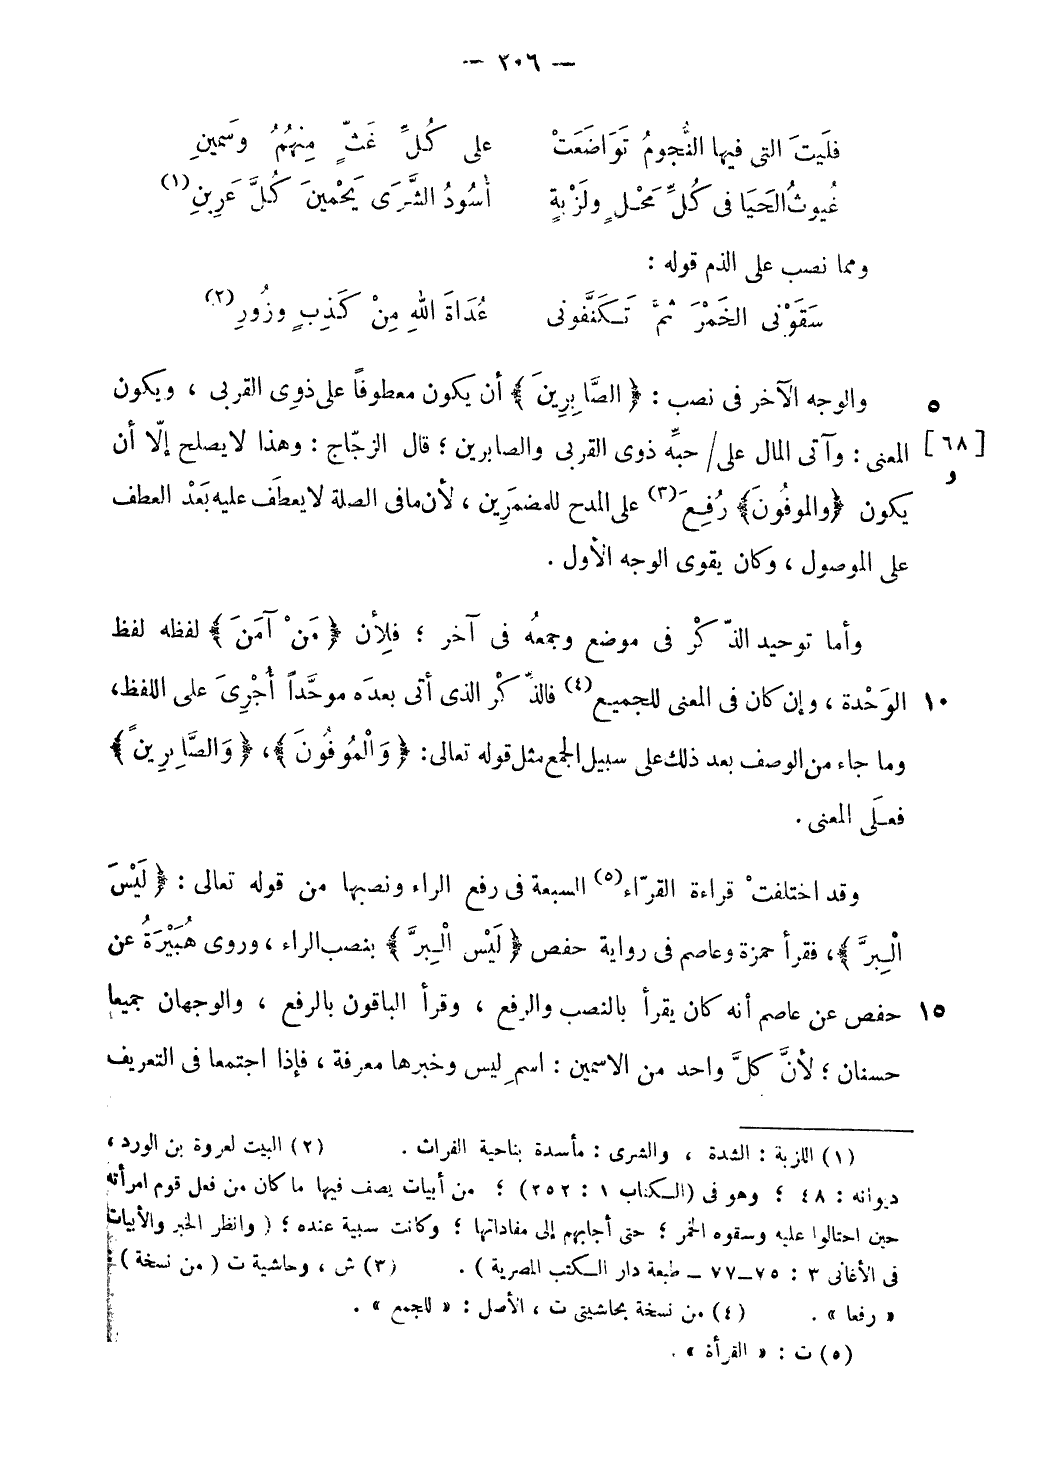 — ٢٠٦ —
فلَيتَ التى فيها النُّجومُ تَوَاضَعَتْ على كُلِّ غَثٍّ مِنهُمُ وَسَمينِ
غُيوثُ الحَيَا فى كُلِّ مَحْلٍ ولَزْبةٍ أُسُودُ الشَّرَى يَحْمينَ كُلَّ عَرِينِ (١)
ومما نصب على الذم قوله :
سَقَوْنى الخَمْرَ ثمَّ تَكَنَّفونى عُدَاةَ اللهِ مِنْ كَذِبٍ وزُورِ (٢)
٥ والوجه الآخر فى نصب : ﴿ الصَّابِرِينَ ﴾ أن يكون معطوفاً على ذوِى القربى ، ويكون
[٦٨ و] المعنى : وآتى المال على/ حبِّه ذوى القربى والصابرين ؛ قال الزجّاج : وهذا لا يصلح إلّا أن
يكون ﴿والموفُونَ﴾ رُفِعَ (٣) على المدح للمضمَرِين ، لأن ما فى الصلة لا يعطَف عليه بَعْد العطف
على الموصول ، وكان يقوى الوجه الأول .
وأما توحيد الذّكْر فى موضع وجمعُه فى آخر ؛ فلِأن ﴿ مَنْ آمَنَ ﴾ لفظه لفظ
١٠ الوَحْدة ، وإن كان فى المعنى للجميع (٤) فالذّكْر الذى أتى بعدَه موحَّداً أُجْرِىَ على اللفظ،
وما جاء من الوصف بعد ذلك على سبيل الجمع مثل قوله تعالى: ﴿ وَالْمُوفُونَ ﴾، ﴿ وَالصَّابِرِينَ ﴾
فعلَى المعنى .
وقد اختلفتْ قراءة القرّاء (٥) السبعة فى رفع الراء ونصبها من قوله تعالى : ﴿ لَيْسَ
الْبِرَّ ﴾، فقرأ حمزة وعاصم فى رواية حفص ﴿ لَيْسَ الْبِرَّ ﴾ بنصب الراء ، وروى هُبَيْرَةُ عن
١٥ حفص عن عاصم أنه كان يقرأ بالنصب والرفع ، وقرأ الباقون بالرفع ، والوجهان جميعا
حسنان ؛ لأنَّ كلَّ واحد من الاسمين : اسم ليس وخبرها معرفة ، فإذا اجتمعا فى التعريف
(١) اللزبة : الشدة ، والشرى : مأسدة بناحية الفرات . (٢) البيت لعروة بن الورد ،
ديوانه : ٤٨ ؛ وهو فى (الكتاب ١ : ٢٥٢) ؛ من أبيات يصف فيها ما كان من فعل قوم امرأته
حين احتالوا عليه وسقوه الخمر ؛ حتى أجابهم إلى مفاداتها ؛ وكانت سبية عنده ؛ ( وانظر الخبر والأبيات
فى الأغانى ٣ : ٧٥–٧٧ – طبعة دار الكتب المصرية ) . (٣) ش ، وحاشية ت ( من نسخة ) :
« رفعا » . (٤) من نسخة بحاشيتى ت ، الأصل : « للجمع » .
(٥) ت : « القرأة » .